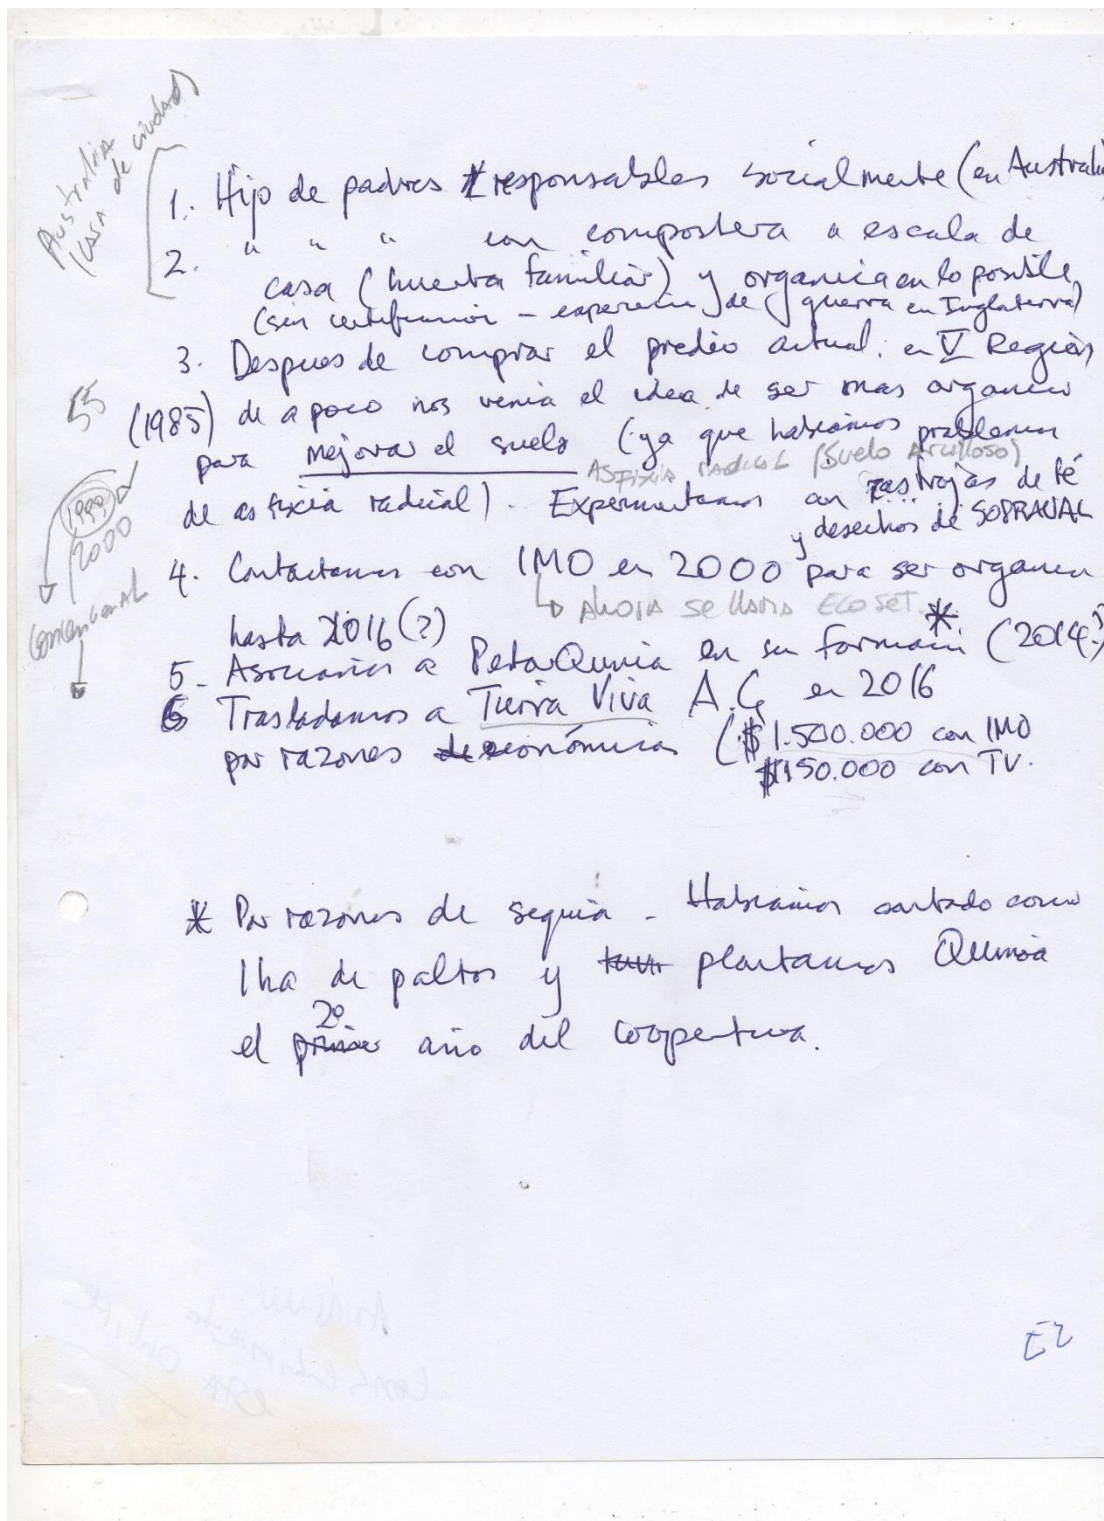 Australia
(casa de ciudad)
1. Hijo de padres responsables socialmente (en Australia
2. " " " con compostera a escala de
casa (huerta familiar) y organica en lo posible
(sin certificacion - experiencia de guerra en Inglaterra)
3. Despues de comprar el predio actual. en V Región
55
(1985) de a poco nos venia el idea de ser mas organico
para mejorar el suelo (ya que habiamos problemas
ASFIXIA RADICAL (Suelo Arcilloso)
de asfixia radical). Experimentamos con rastrojas de té
y desechos de SOPRAVAL
1999
2000
Convencional
4. Contactamos con IMO en 2000 para ser organico
↳ AHORA se llama ECOSET.
hasta 2016 (?)
5. Asociamos a PetaQunia en su formacin * (2014?)
6 Trasladamos a Tierra Viva A.G en 2016
por razones económica ($1.500.000 con IMO
$150.000 con TV.
* Por razones de sequia - Habiamos cortado como
1 ha de paltos y plantamos Qunioa
el 2º año del coopertiva.
E2